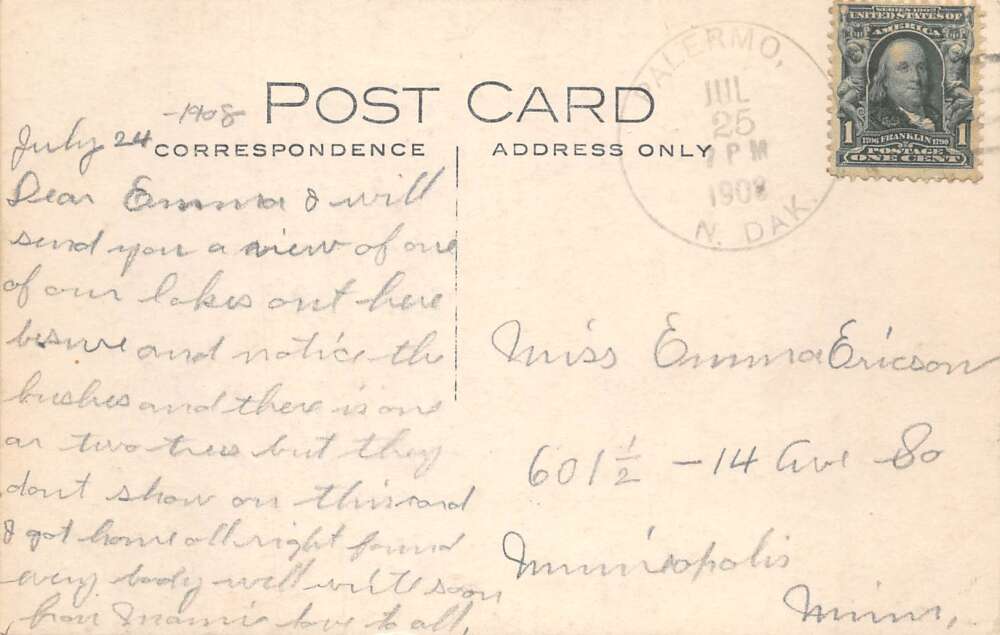 POST CARD
CORRESPONDENCE
ADDRESS ONLY
July 24 -1908
Dear Emma I will
send you a view of one
of our lakes out here
besure and notice the
bushes and there is one
or two trees but they
dont show on this card
I got home all right found
every body well write soon
from Mamie love to all,
PALERMO,
JUL
25
7 PM
1908
N. DAK.
SERIES 1902
UNITED STATES OF
AMERICA
1706 FRANKLIN 1790
POSTAGE
1 ONE CENT 1
Miss Emma Ericson
601 1/2 - 14 Ave So
Minneapolis
Minn,